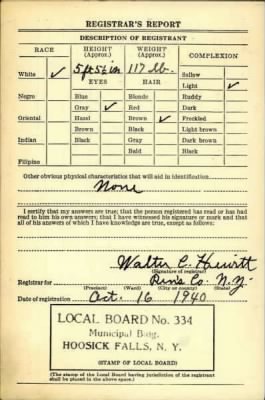 REGISTRAR'S REPORT
DESCRIPTION OF REGISTRANT
RACE HEIGHT (Approx.) WEIGHT (Approx.) COMPLEXION
White ✓ 5 ft 5½ in 117 lb. Sallow
EYES HAIR Light ✓
Negro Blue Blonde Ruddy
Gray ✓ Red Dark
Oriental Hazel Brown ✓ Freckled
Brown Black Light brown
Indian Black Gray Dark brown
Bald Black
Filipino
Other obvious physical characteristics that will aid in identification
None
I certify that my answers are true; that the person registered has read or has had
read to him his own answers; that I have witnessed his signature or mark and that
all of his answers of which I have knowledge are true, except as follows:
Walter C. Hewitt
(Signature of registrar)
Registrar for Rens Co. N.Y.
(Precinct) (Ward) (City or county) (State)
Date of registration Oct. 16 1940
LOCAL BOARD No. 334
Municipal Bldg.
HOOSICK FALLS, N. Y.
(STAMP OF LOCAL BOARD)
(The stamp of the Local Board having jurisdiction of the registrant
shall be placed in the above space.)